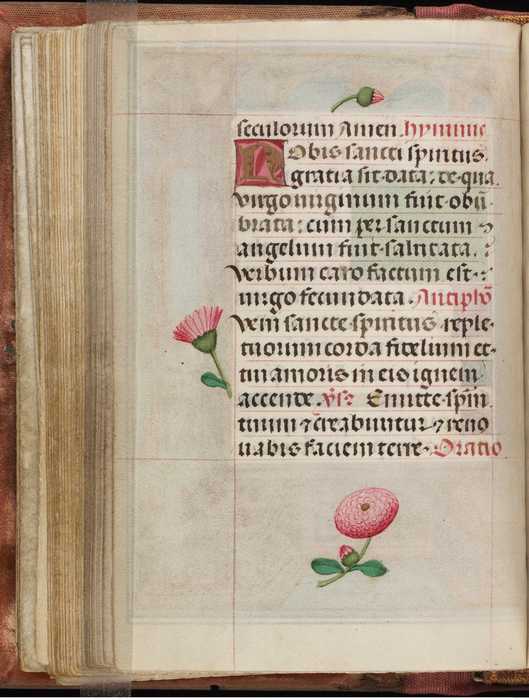 seculorum Amen. hymnus
Nobis sancti spiritus
gratia sit data: de qua
virgo virginum fuit obū
brata: cum per sanctum
angelum fuit salutata.
Verbum caro factum est:
virgo fecundata. Antiphō
Veni sancte spiritus reple
tuorum corda fidelium et
tui amoris in eis ignem
accende. v̄s. Emitte spiri
tuum ⁊ creabuntur ⁊ reno
uabis faciem terre. Oratio